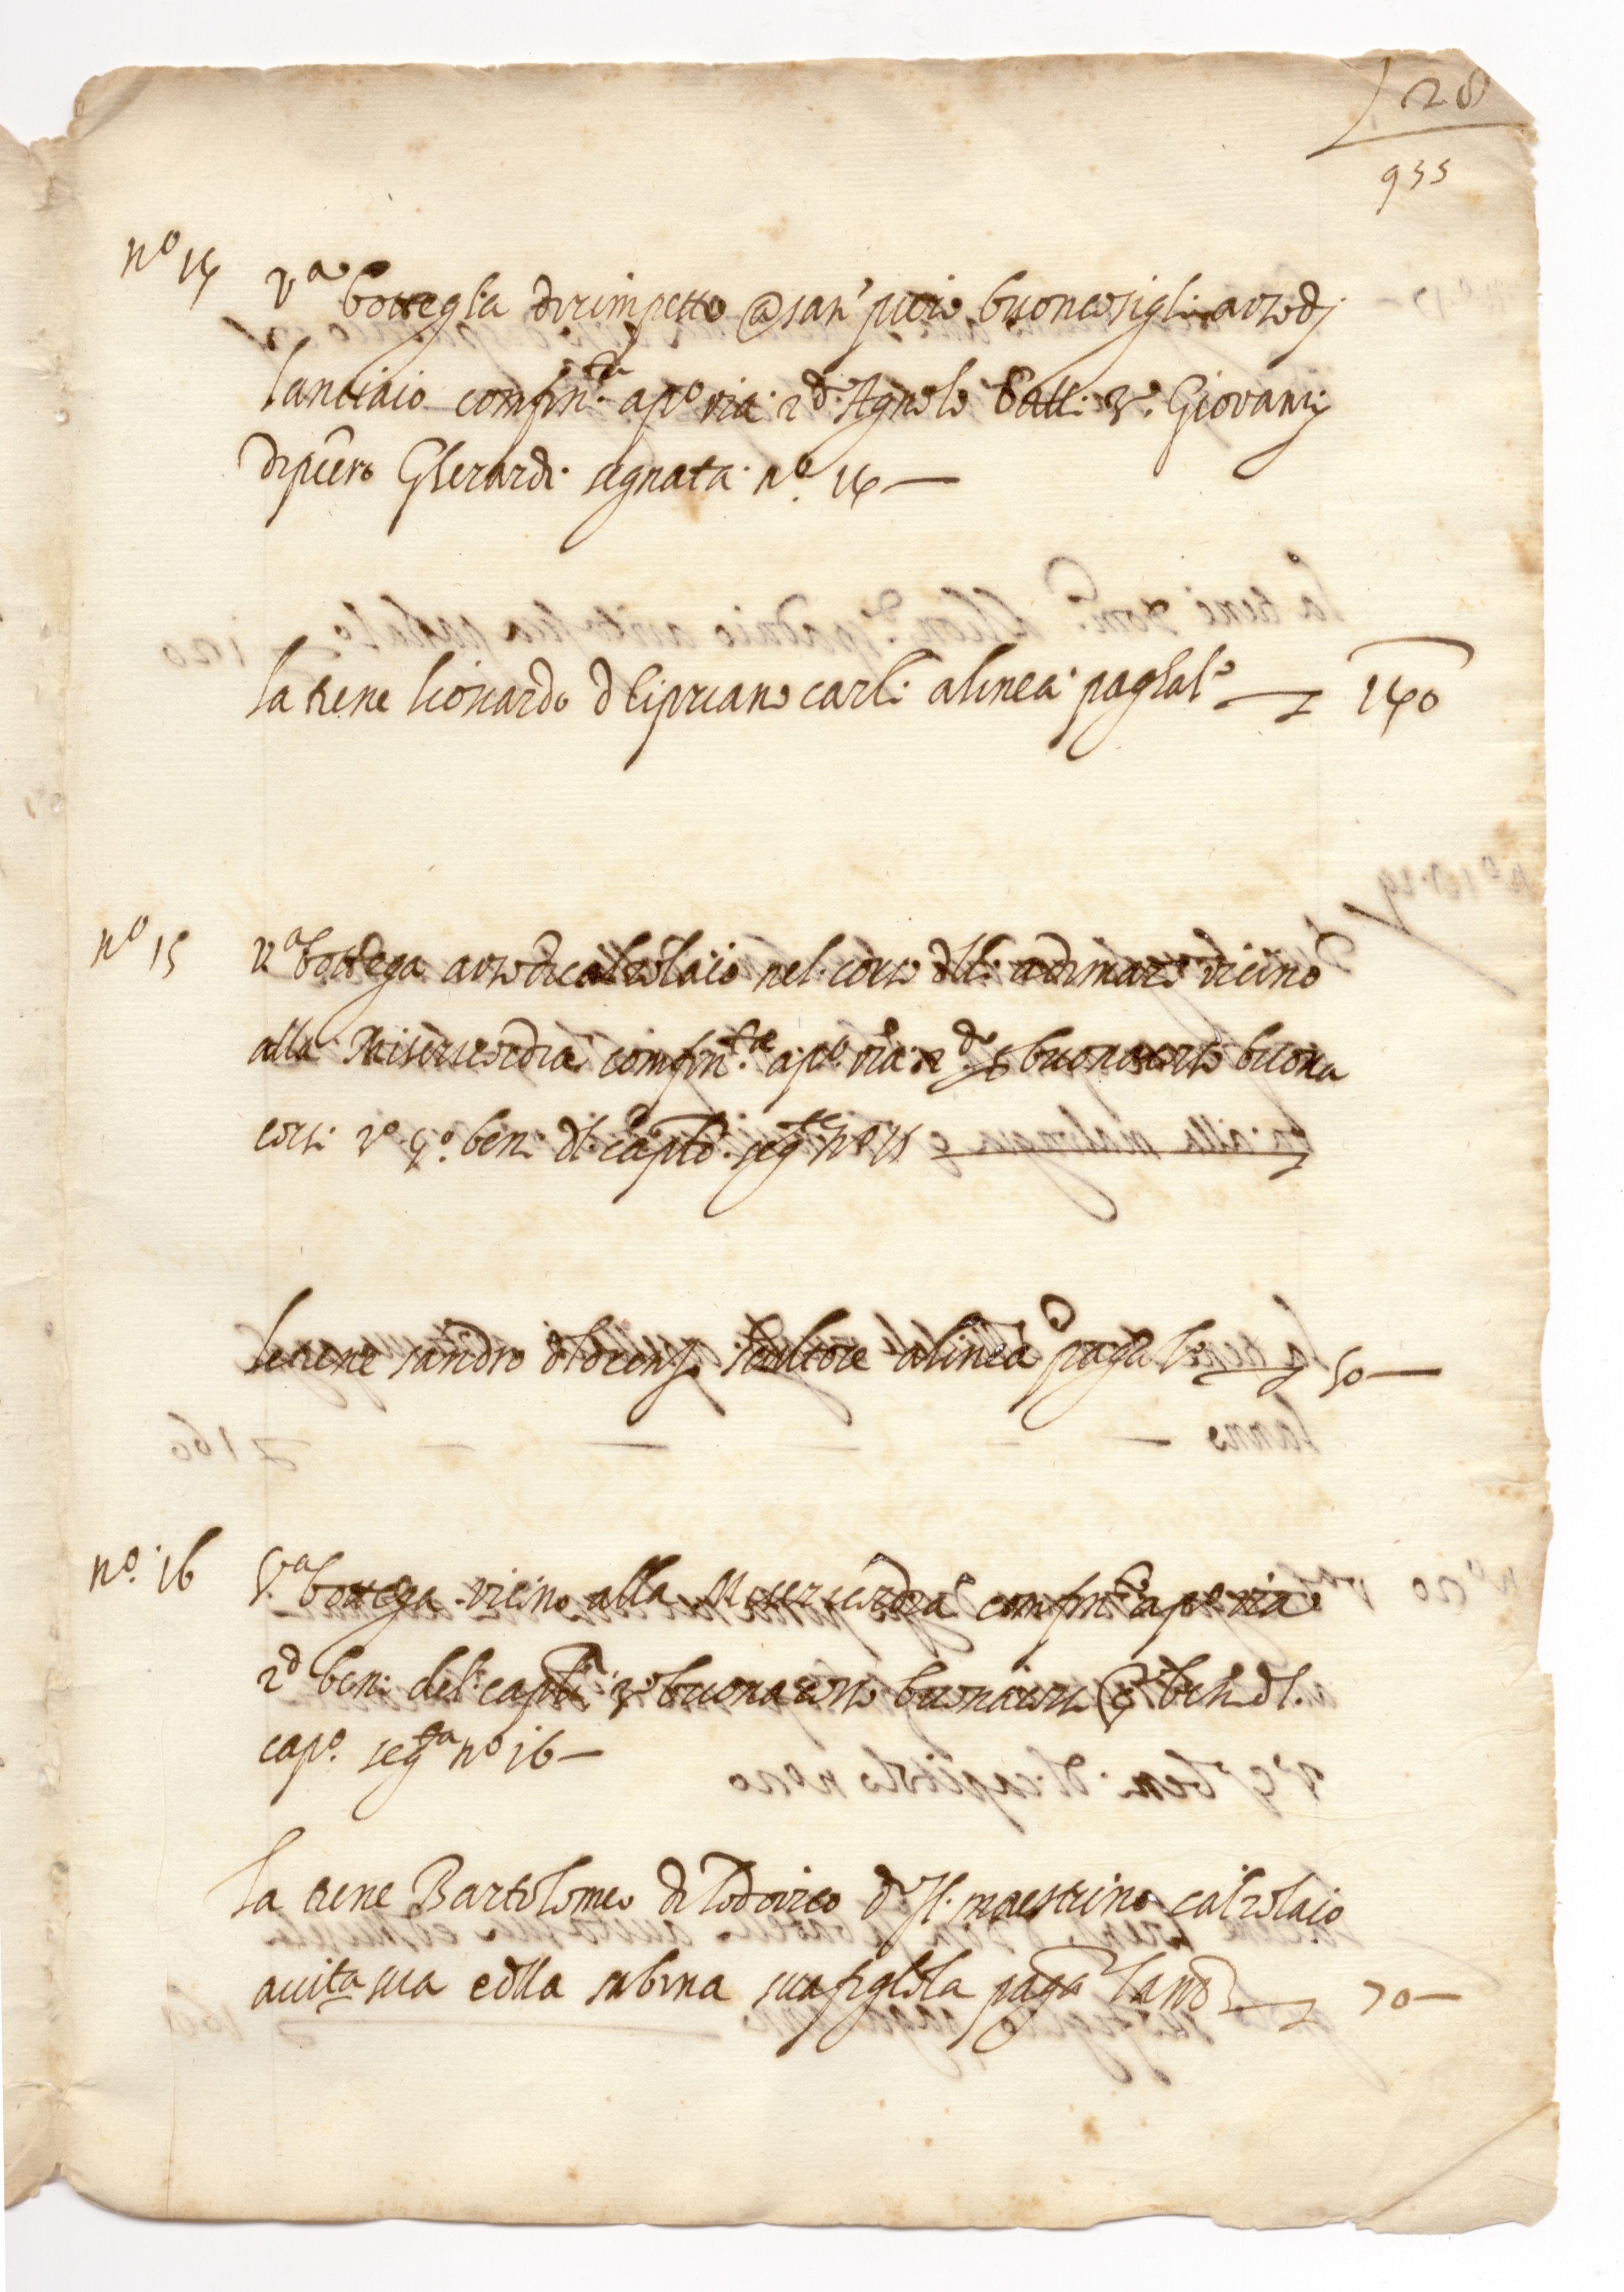 28
935
nº 14
vª bottegha dirimpetto @ san' piero buonconsigli a uso di
lanciaio confin.ta a pº via 2º Agnolo 3º Giovanni
di piero Gherardi segnata nº 14
la tiene lionardo di Cipriano carli a linea pag lalº 140
nº 15
vª bottega a uso di calzolaio nel corso delli adimari vicino
alla Misericordia confin.ta a pº via 2º buonacorso buona
corsi 3º 4º beni dl capto seg.ta nº 15
le tiene sandro di lorenzo scultore a linea paga lº 50
nº 16
Vª bottega vicino alla Misericordia confin.ta a pº via
2º beni del capto 3º buonacorso buonacorsi 4º beni dl
capº seg.ta nº 16
la tiene Bartolomeo di lodovico dl maestrino calzolaio
a vita sua e dlla sabina sua figlola paga lano 70